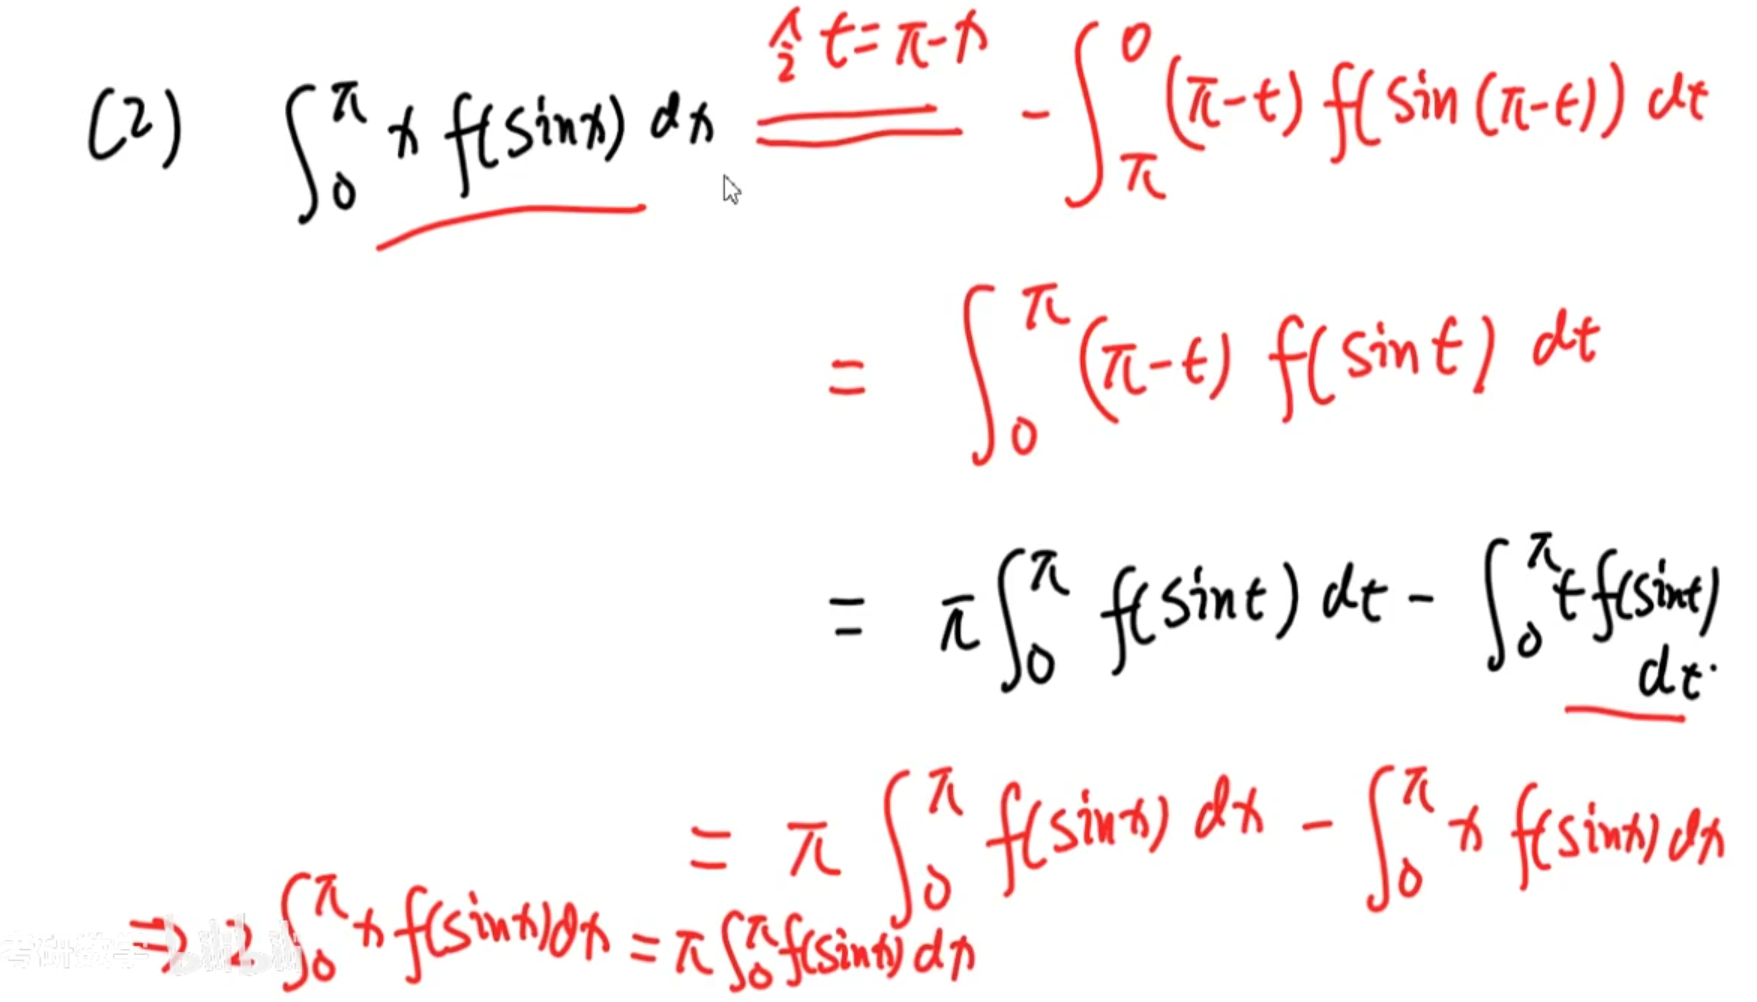 (2) ∫₀^π x f(sinx) dx 令 t=π-x = -∫_π^0 (π-t) f(sin(π-t)) dt
= ∫₀^π (π-t) f(sint) dt
= π∫₀^π f(sint) dt - ∫₀^π t f(sint) dt.
= π ∫₀^π f(sinx) dx - ∫₀^π x f(sinx) dx
⇒ 2 ∫₀^π x f(sinx) dx = π ∫₀^π f(sinx) dx
考研数学 bilibili